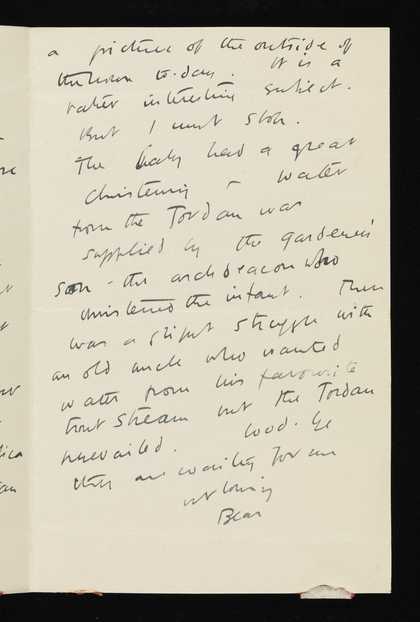 a picture of the outside of
the house to-day. It is a
rather interesting subject.
But I must stop.
The baby had a great
christening & water
from the Jordan was
supplied by the gardener's
son - the archdeacon who
christened the infant. There
was a slight struggle with
an old uncle who wanted
water from his favourite
trout stream but the Jordan
prevailed. Good-bye
they are waiting for me
loving
Bear